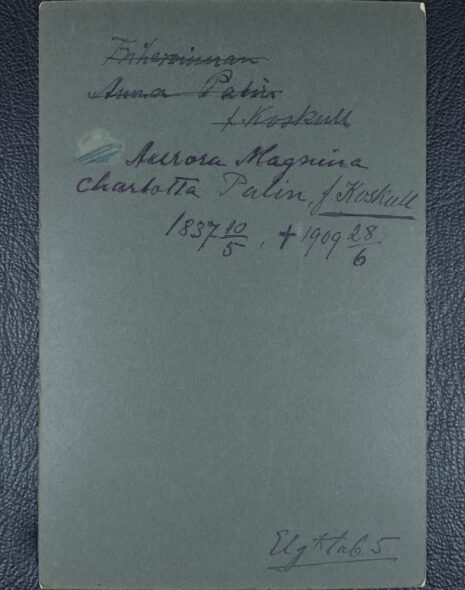 Friherrinnan
Anna Palin
f. Koskull
Aurora Magnina
Charlotta Palin, f. Koskull
1837 10/5, + 1909 28/6
Elg* tab. 5